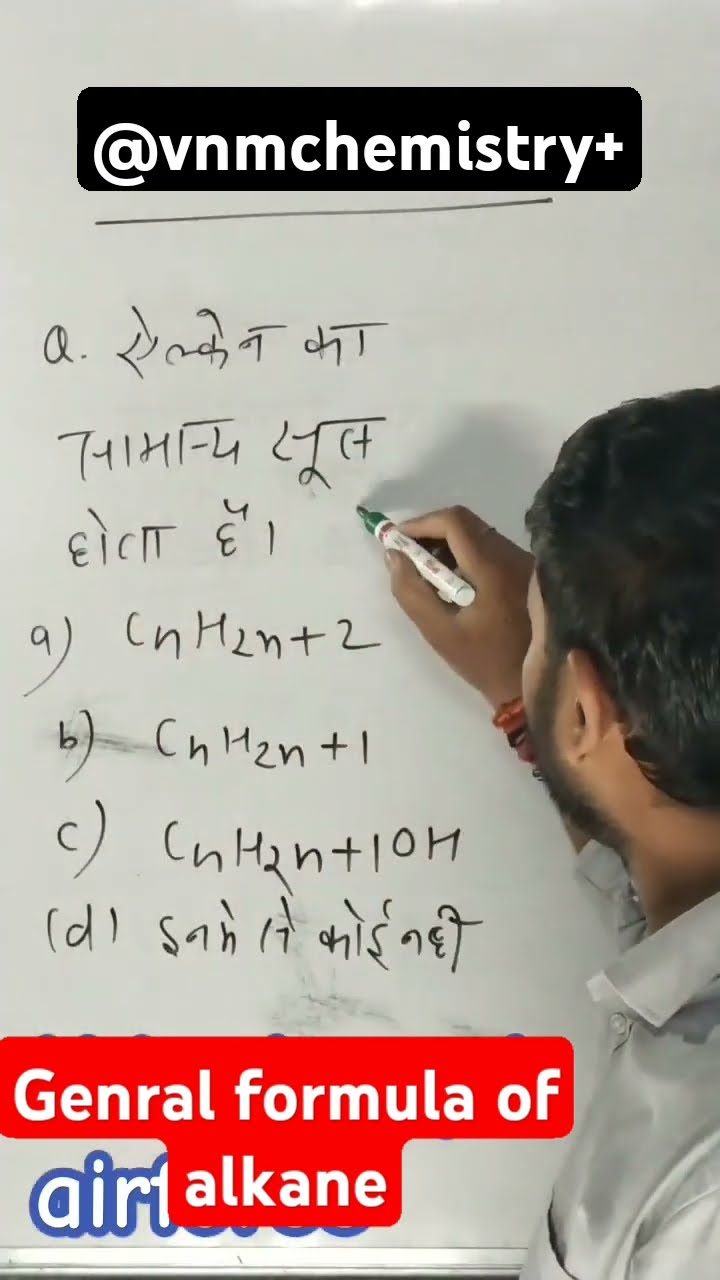 @vnmchemistry+
Q. ऐल्केन का
सामान्य सूत्र
होता हैं।
a) CnH2n+2
b) CnH2n+1
c) CnH2n+1OH
(d) इनमे से कोई नही
Genral formula of
alkane